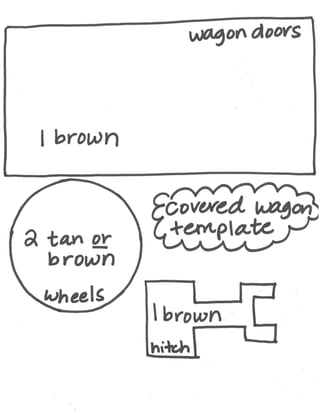 wagon doors
1 brown
covered wagon
template
2 tan or
brown
wheels
1 brown
hitch